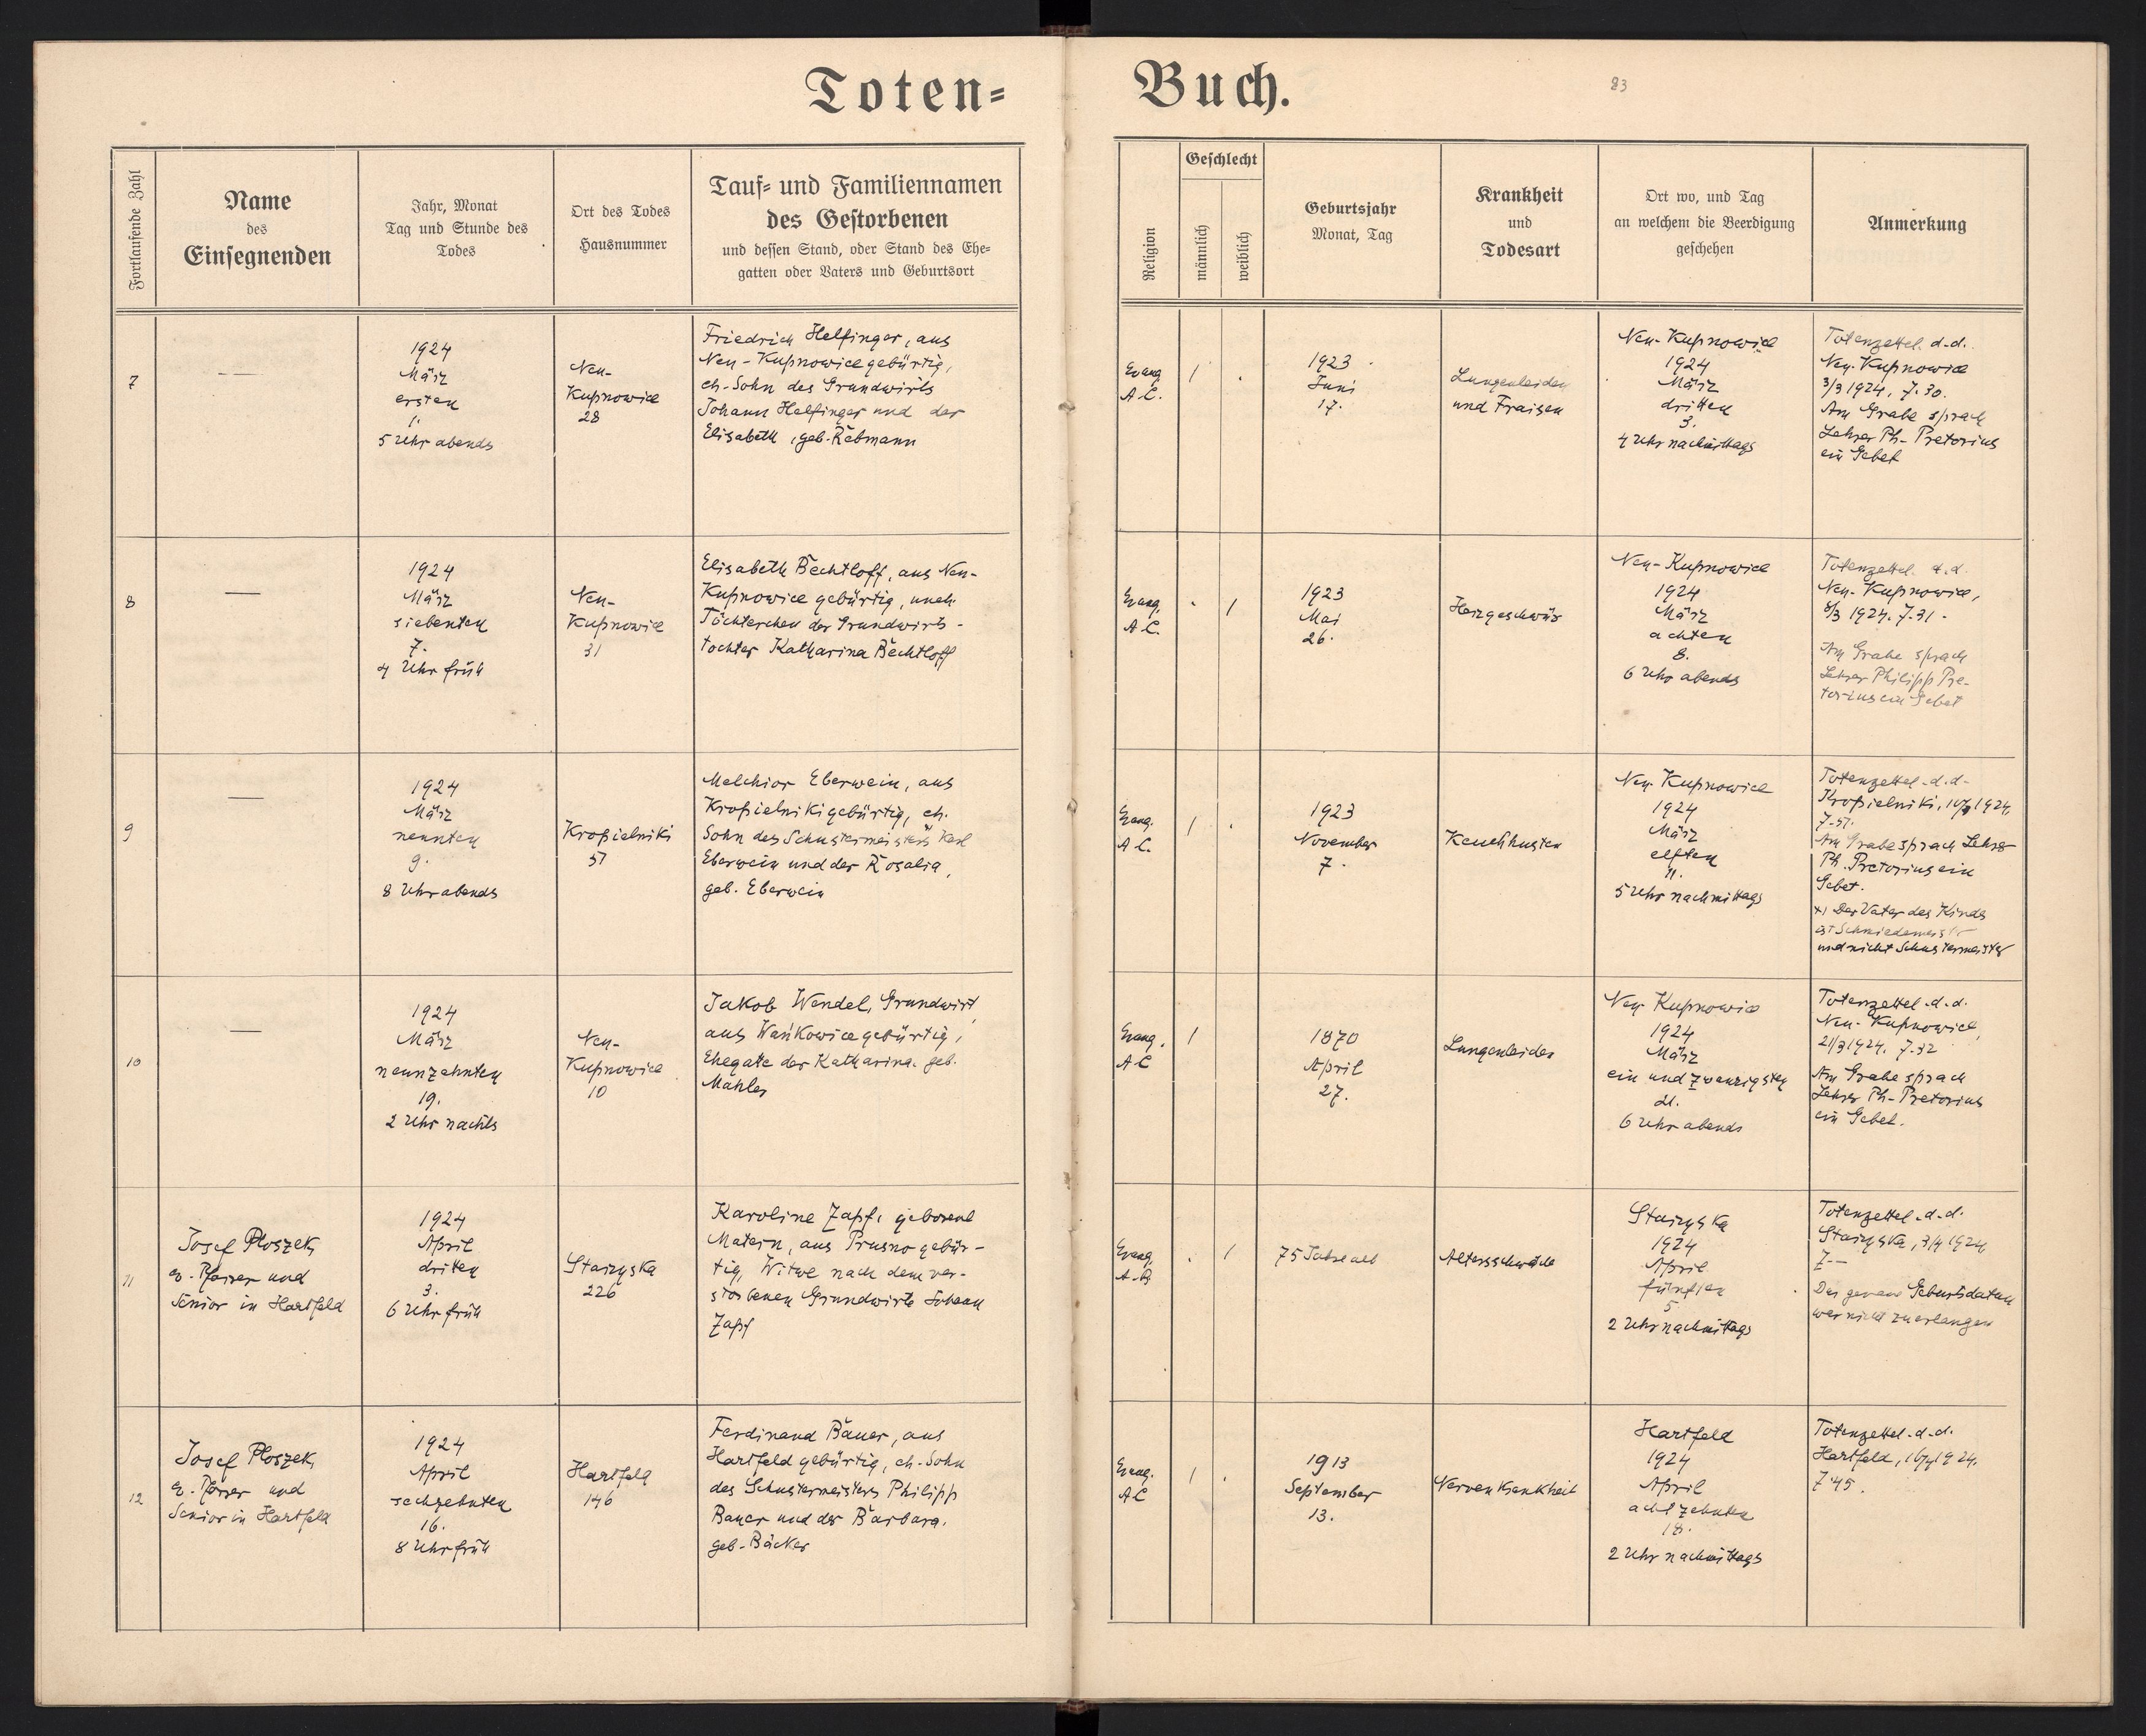 Toten=
Buch.
83
Fortlaufende Zahl
Name
des
Einsegnenden
Jahr, Monat
Tag und Stunde des
Todes
Ort des Todes
Hausnummer
Tauf= und Familiennamen
des Gestorbenen
und dessen Stand, oder Stand des Ehe=
gatten oder Vaters und Geburtsort
Religion
Geschlecht
männlich
weiblich
Geburtsjahr
Monat, Tag
Krankheit
und
Todesart
Ort wo, und Tag
an welchem die Beerdigung
geschehen
Anmerkung
7
— —
1924
März
ersten
1.
5 Uhr abends
Neu-
Kupnowice
28
Friedrich Helfinger, aus
Neu-Kupnowice gebürtig,
eh. Sohn des Grundwirts
Johann Helfinger und der
Elisabeth, geb. Rebmann
Evang.
A.C.
1
.
1923
Juni
17.
Lungenleiden
und Fraisen
Neu-Kupnowice
1924
März
dritten
3.
4 Uhr nachmittags
Totenzettel d.d.
Neu-Kupnowice
3/3 1924, Z. 30.
Am Grabe sprach
Lehrer Ph. Pretorius
ein Gebet
8
—
1924
März
siebenten
7.
4 Uhr früh
Neu-
Kupnowice
31
Elisabeth Bechtloff, aus Neu-
Kupnowice gebürtig, uneh.
Töchterchen der Grundwirts-
tochter Katharina Bechtloff
Evang.
A.C.
.
1
1923
Mai
26.
Herzgeschwür
Neu-Kupnowice
1924
März
achten
8.
6 Uhr abends
Totenzettel d.d.
Neu-Kupnowice,
8/3 1924. Z. 31.
Am Grabe sprach
Lehrer Philipp Pre-
torius ein Gebet
9
—
1924
März
neunten
9.
8 Uhr abends
Kropielniki
51
Melchior Eberwein, aus
Kropielniki gebürtig, eh.
Sohn des Schustermeisters Karl
Eberwein und der Rosalia,
geb. Eberwein
Evang.
A.C.
1
.
1923
November
7.
Keuchhusten
Neu-Kupnowice
1924
März
elften
11.
5 Uhr nachmittags
Totenzettel d.d.
Kropielniki, 10/3 1924,
Z. 51.
Am Grabe sprach Lehrer
Ph. Pretorius ein
Gebet.
x) Der Vater des Kindes
ist Schmiedemeister
und nicht Schustermeister
10
—
1924
März
neunzehnten
19.
2 Uhr nachts
Neu-
Kupnowice
10
Jakob Wendel, Grundwirt,
aus Wańkowice gebürtig,
Ehegatte der Katharina, geb.
Mahler
Evang.
A.C.
1
1870
April
27.
Lungenleiden
Neu-Kupnowice
1924
März
ein und zwanzigsten
21.
6 Uhr abends
Totenzettel d.d.
Neu-Kupnowice,
21/3 1924. Z. 32
Am Grabe sprach
Lehrer Ph. Pretorius
ein Gebet.
11
Josef Ploszek,
ev. Pfarrer und
Senior in Hartfeld
1924
April
dritten
3.
6 Uhr früh
Starzyska
226
Karoline Zapf, geborene
Matern, aus Prusno gebür-
tig, Witwe nach dem ver-
storbenen Grundwirte Johann
Zapf
Evang.
.
1
75 Jahre alt
Altersschwäche
Starzyska
1924
April
fünften
5
2 Uhr nachmittags
Totenzettel d.d.
Starzyska, 3/4 1924
Z. —
Das genaue Geburtsdatum
war nicht zu erlangen
12
Josef Ploszek,
ev. Pfarrer und
Senior in Hartfeld
1924
April
sechzehnten
16.
8 Uhr früh
Hartfeld
146
Ferdinand Bauer, aus
Hartfeld gebürtig, eh. Sohn
des Schustermeisters Philipp
Bauer und der Barbara,
geb. Bäcker
Evang.
A.C.
1
.
1913
September
13.
Nervenkrankheit
Hartfeld
1924
April
achtzehnten
18.
2 Uhr nachmittags
Totenzettel d.d.
Hartfeld, 16/4 1924.
Z. 45.